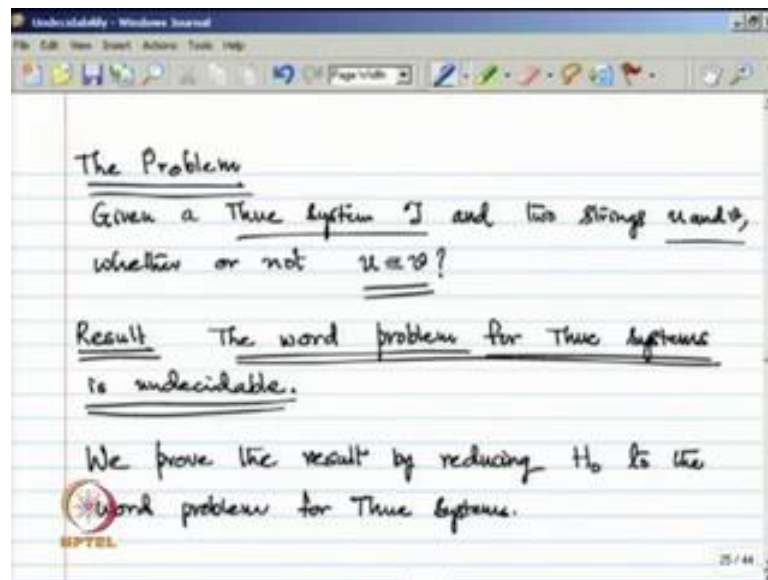 Undecidability - Windows Journal
File Edit View Insert Actions Tools Help
Page Width
The Problem
Given a Thue System T and two strings u and v,
whether or not u ≡ v?
Result The word problem for Thue Systems
is undecidable.
We prove the result by reducing H₀ to the
word problem for Thue Systems.
NPTEL
25 / 44